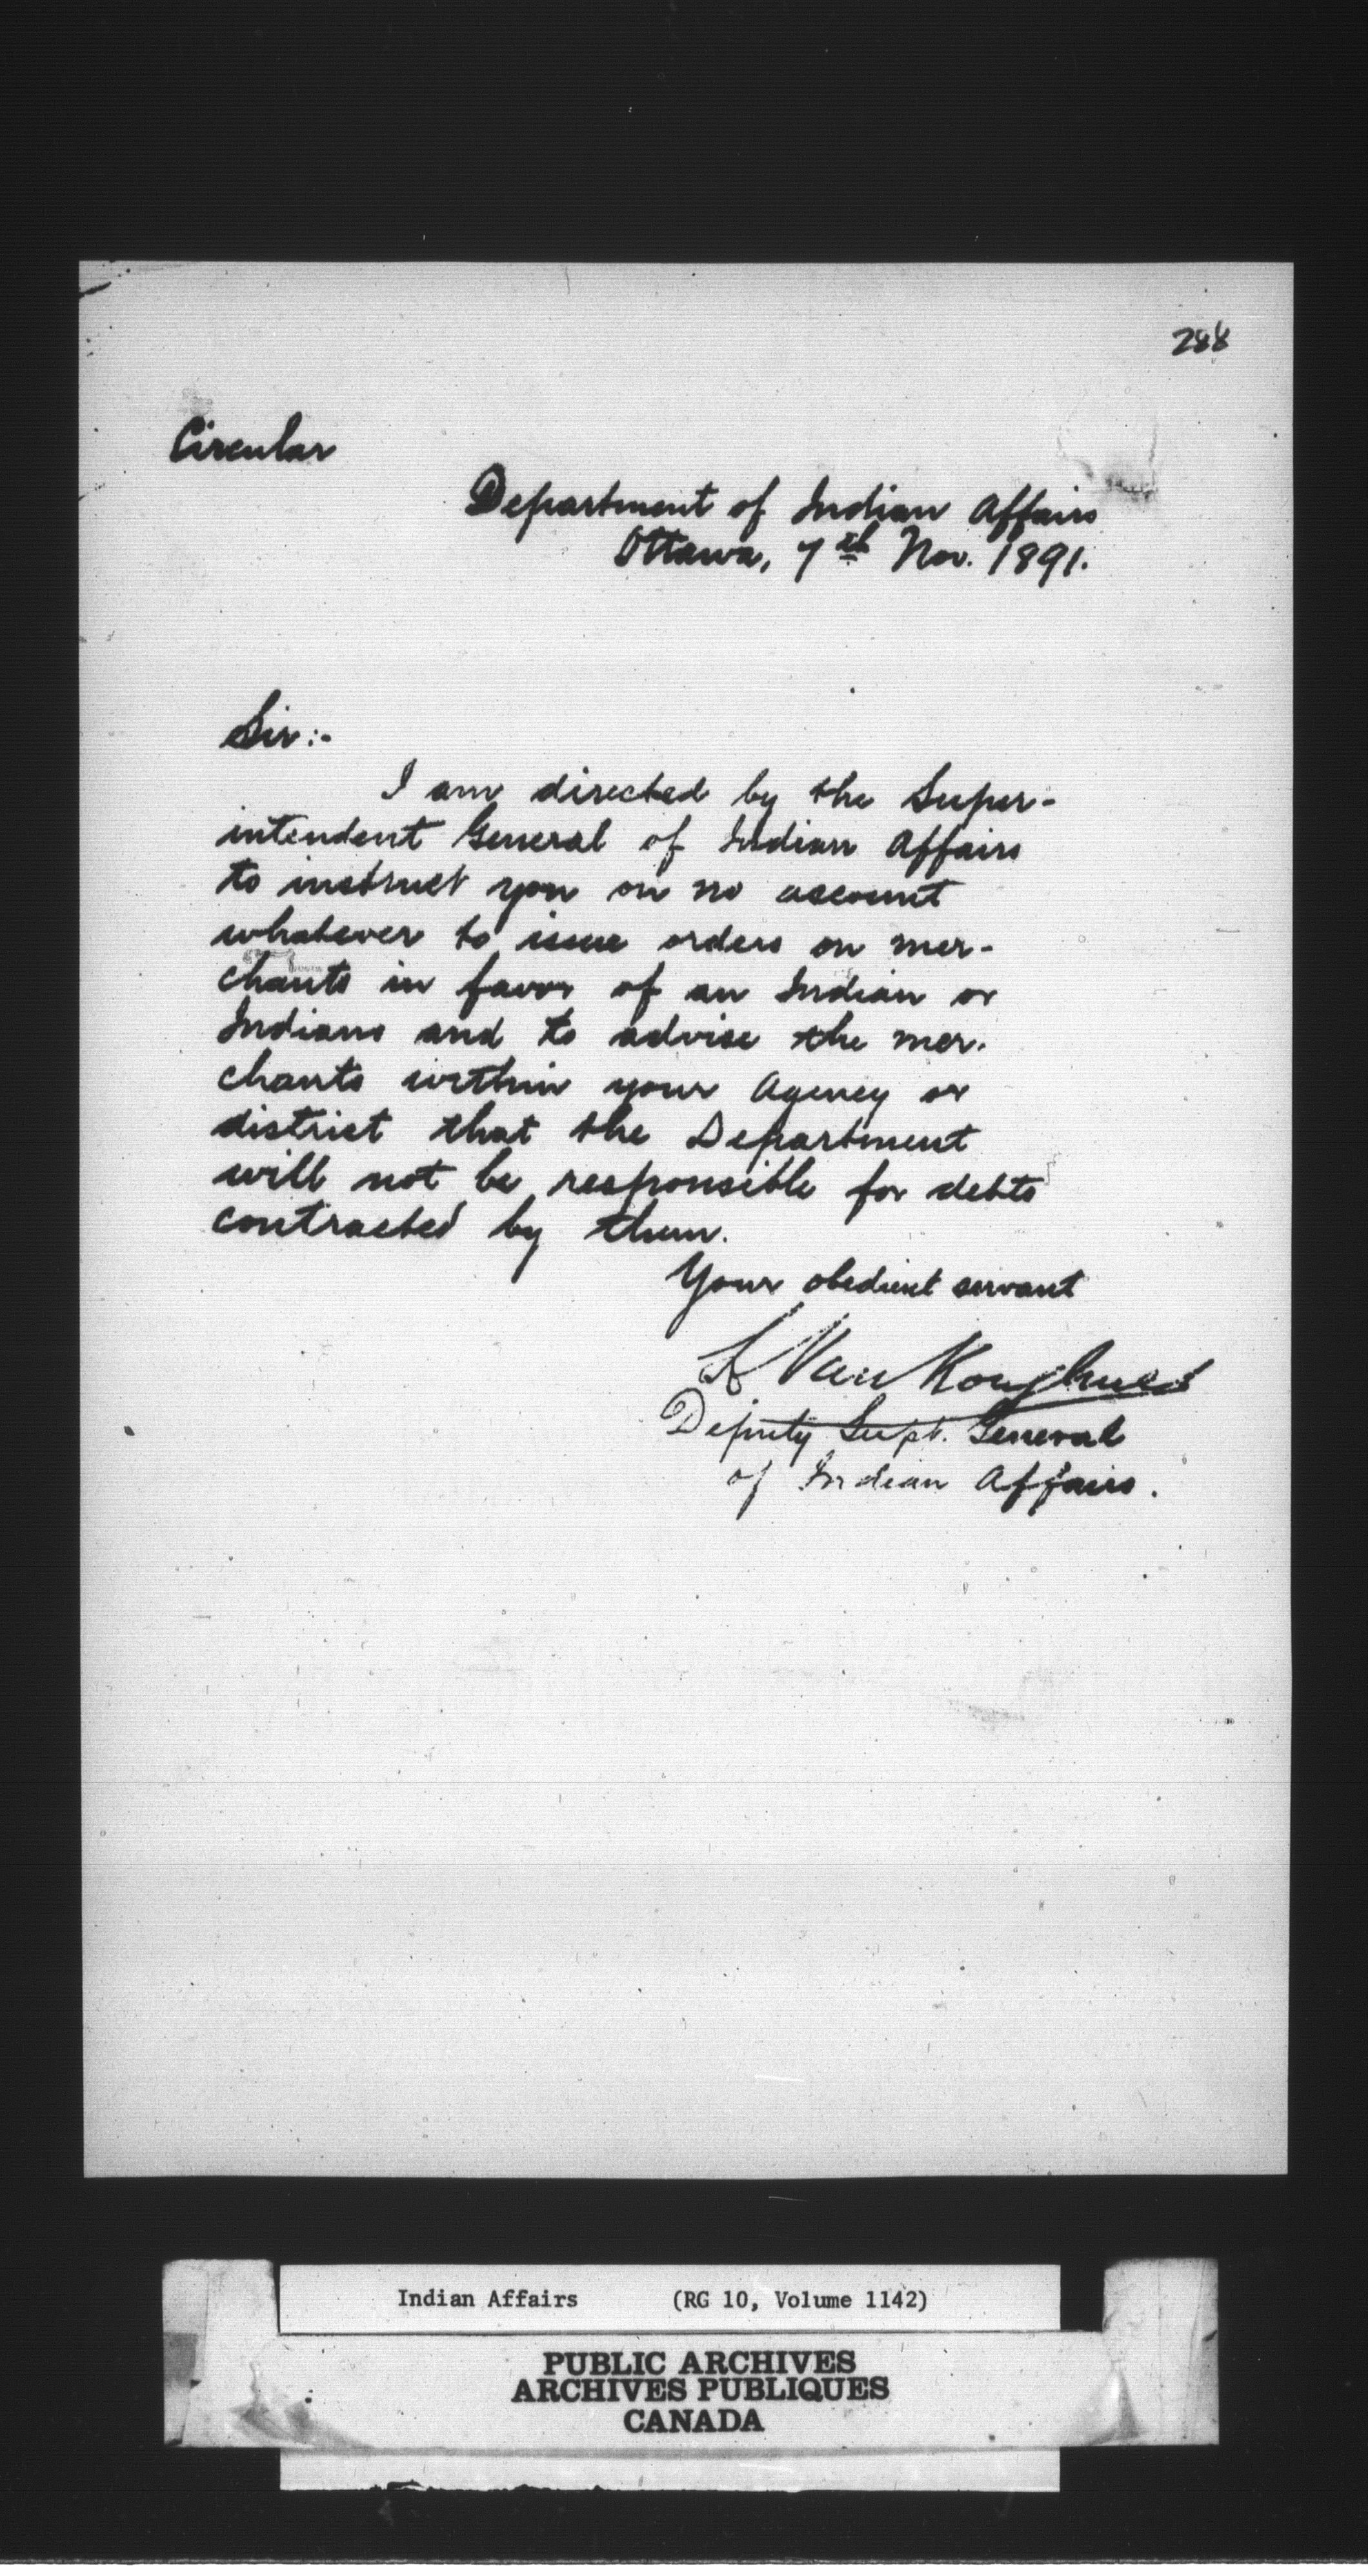 288
Circular
Department of Indian Affairs
Ottawa, 7th Nov. 1891.
Sir:-
I am directed by the Super-
intendent General of Indian Affairs
to instruct you on no account
whatever to issue orders on mer-
chants in favor of an Indian or
Indians and to advise the mer-
chants within your Agency or
district that the Department
will not be responsible for debts
contracted by them.
Your obedient servant
L VanKoughnet
Deputy Supt. General
of Indian Affairs.
Indian Affairs (RG 10, Volume 1142)
PUBLIC ARCHIVES
ARCHIVES PUBLIQUES
CANADA